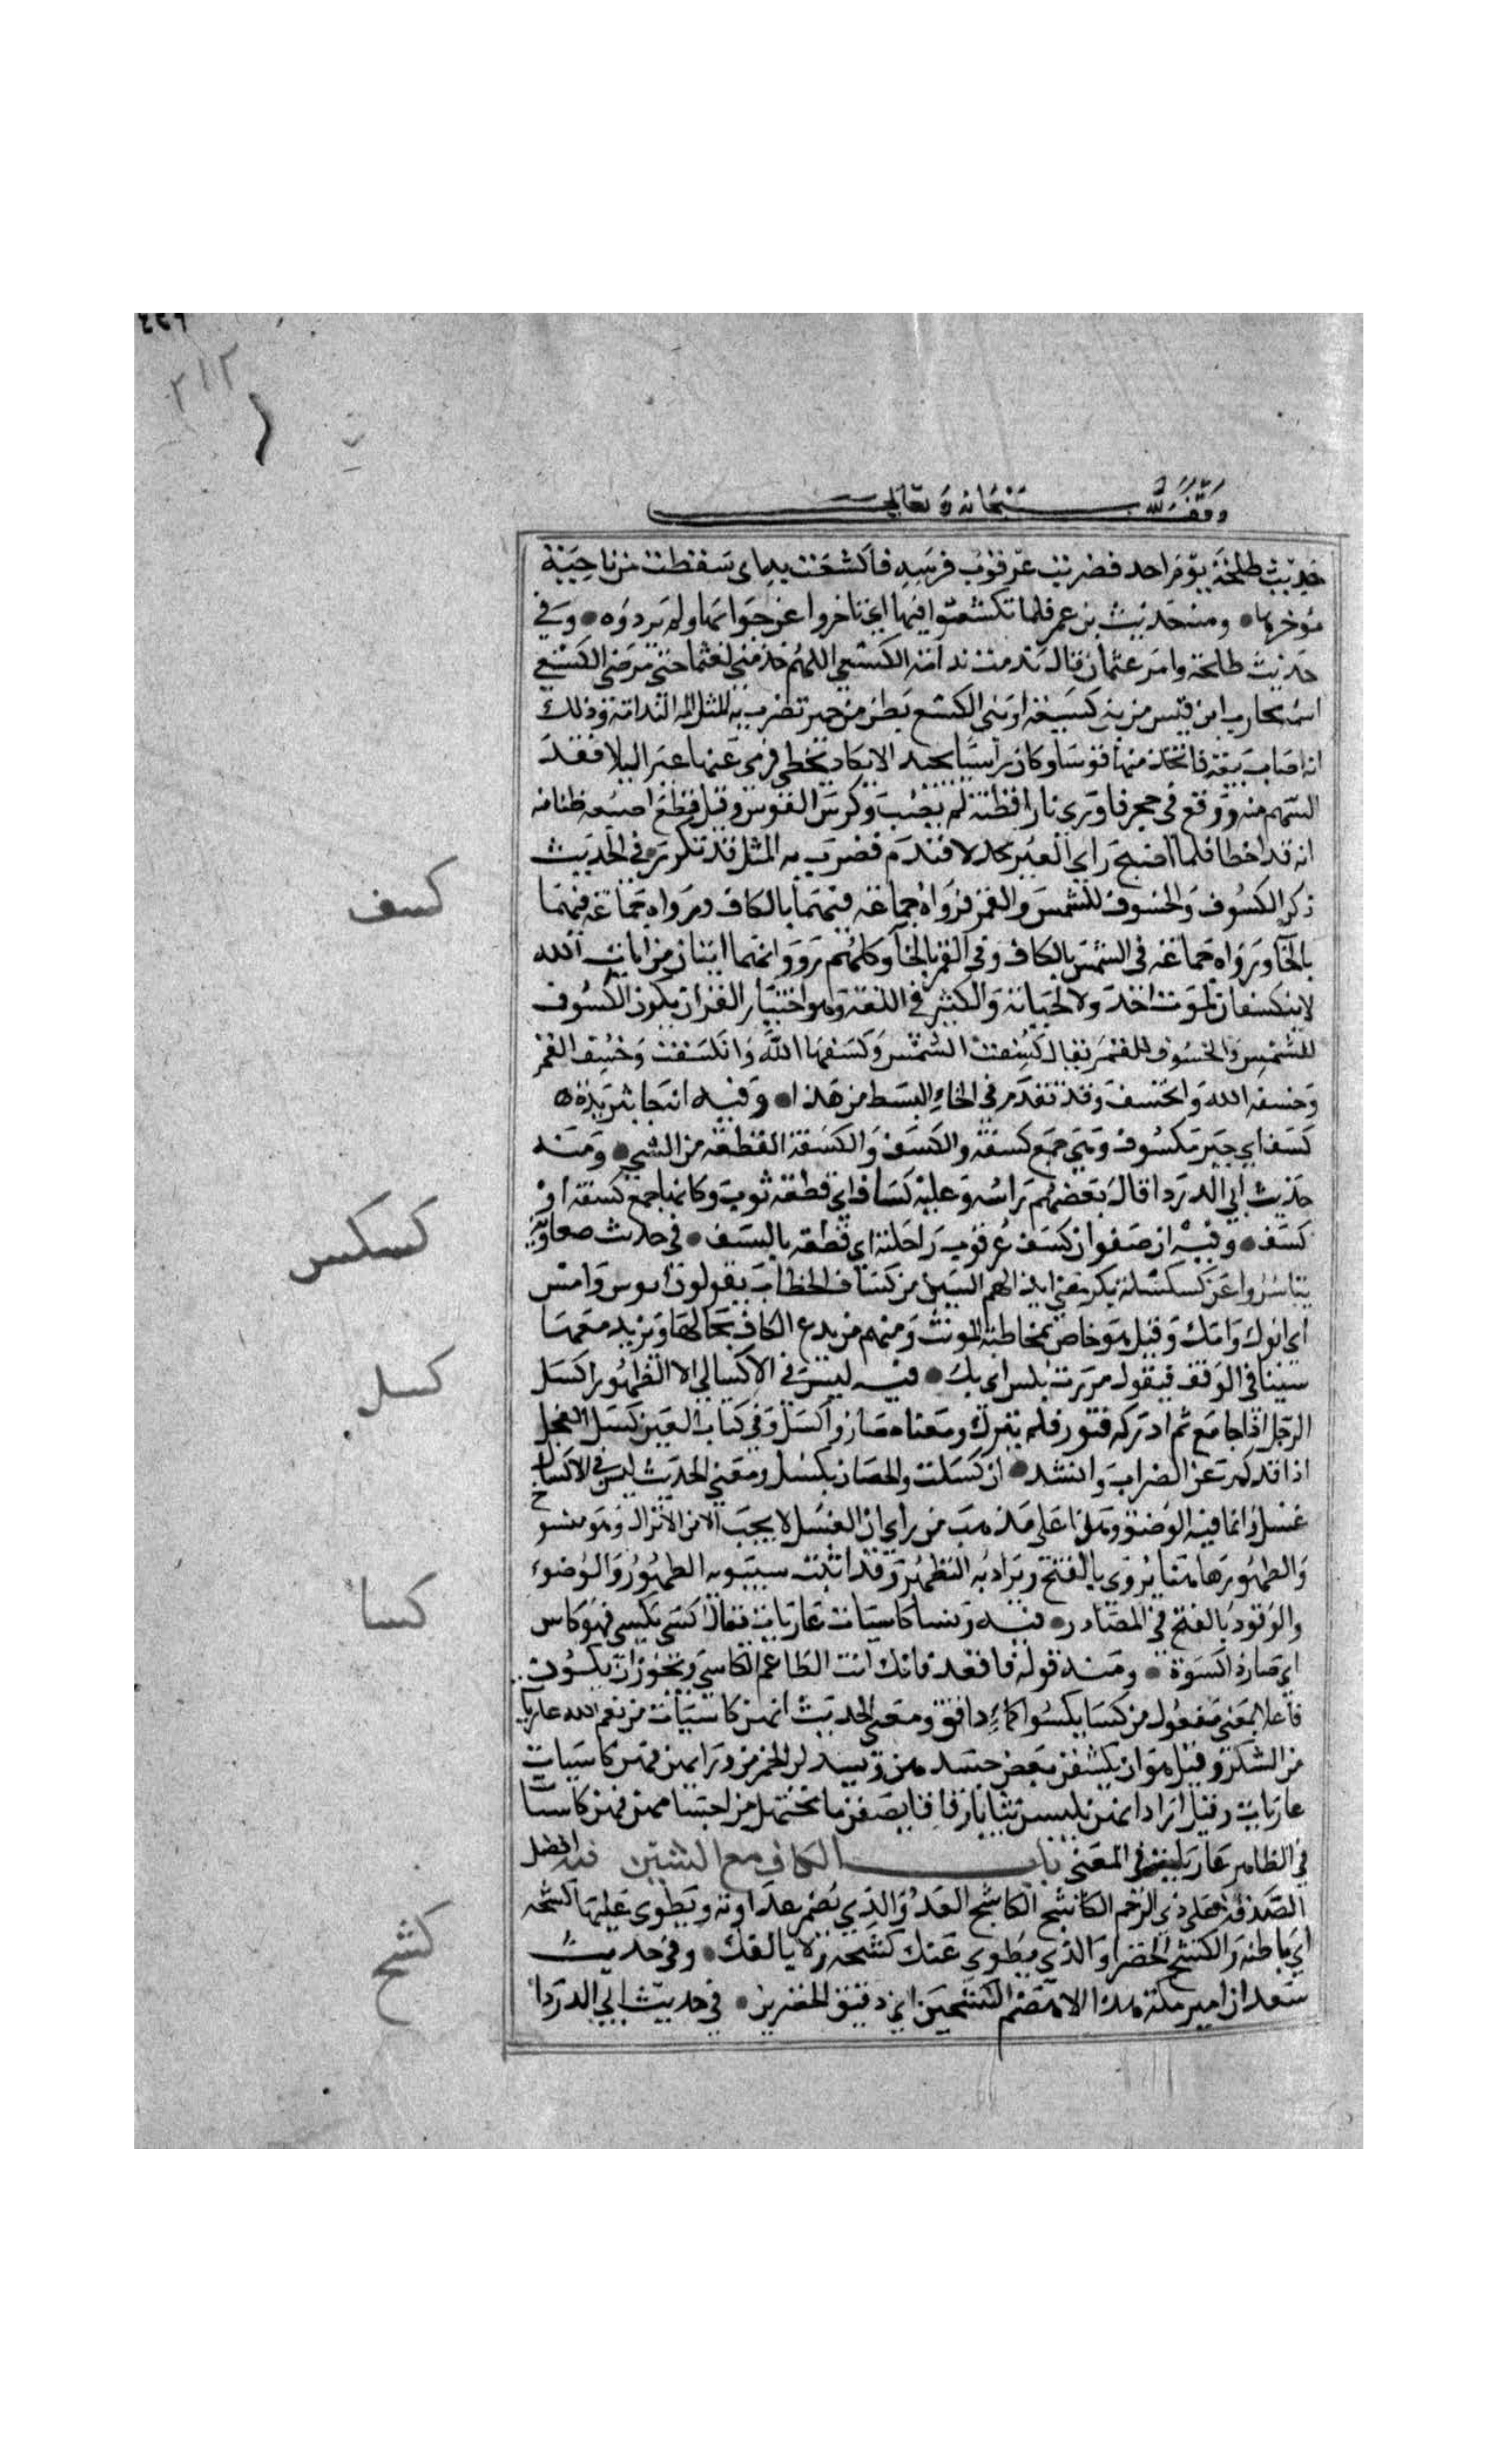 ٤٢٦
٣١٢
وقف لله سبحانه وتعالى
حديث طلحة يوم احد فضربت عرقوب فرسه فاكتسعت به اى سقطت من ناحية
مؤخرها ومنه حديث بن عمر فلما تكسعوا فيها اي تاخروا عن جوابها ولم يردوه وفي
حديث طلحة وامر عثمان قال ندمت ندامة الكسعي اللهم خذ مني لعثمان حتى ترضى الكسعي
اسمه محارب ابن قيس من بني كسيعة او بني الكسع بطن من حمير تضرب به المثل في الندامة وذلك
انه اصاب نبعة فاتخذ منها قوسا وكان راميا مجيدا لا يكاد يخطي فرمى عنها عيرا ليلا فنفذ
السهم منه ووقع في حجر فاورى نارا فظنه لم يصب وكسر القوس وقيل قطع اصبعه ظنا منه
انه قد اخطا فلما اصبح راي العير مجدلا فندم فضرب به المثل قد تكرر في الحديث
ذكر الكسوف والخسوف للشمس والقمر فرواه جماعة فيهما بالكاف ورواه جماعة فيهما
بالخا ورواه جماعة في الشمس بالكاف وفي القمر بالخا وكلهم رووا انهما ايتان من ايات الله
لا ينكسفان لموت احد ولا لحياته والكثير في اللغة وهو اختيار الفرا ان يكون الكسوف
للشمس والخسوف للقمر يقال كسفت الشمس وكسفها الله وانكسفت وخسف القمر
وخسفه الله وانخسف وقد تقدم في الخاء ابسط من هذا وفيه انه جا بثريدة
كسف اي خبز مكسوف وهي جمع كسفة والكسف والكسفة القطعة من الشي ومنه
حديث ابي الدردا قال بعضهم راسه وعليه كساف اي قطعة ثوب وكانها جمع كسفة او
كسف وفيه ان صفوان كسف عرقوب راحلته اي قطعه بالسيف في حديث معاوية
تياسروا عن كسكسة بكر يعني ابدالهم السين من كاف الخطاب يقولون ابوس وامس
اى ابوك وامك وقيل هو خاص بمخاطبة المونث ومنهم من يدع الكاف بحالها ويزيد معها
سينا في الوقف فيقول مررت بكس اى بك فيه ليس في الاكسال الا الطهور اكسل
الرجل اذا جامع ثم ادركه فتور فلم ينزل ومعناه صار ذا كسل وفي كتاب العين كسل الفحل
اذا فتر عن الضراب وانشد ان كسلت والحصان يكسل ومعني الحديث ليس في الاكسال
غسل وانما فيه الوضو وهذا على مذهب من راى ان الغسل لا يجب الا من الانزال وهو منسوخ
والطهور ها هنا يروى بالفتح ويراد به التطهر وقد اثبت سيبويه الطهور والوضوء
والوقود بالفتح في المصادر فيه ونسا كاسيات عاريات يقال كسي يكسى فهو كاس
اي صار ذا كسوة ومنه قوله فاقعد فانك انت الطاعم الكاسي ويجوز ان يكون
فاعلا بمعنى مفعول من كسا يكسوا كماء دافق ومعني الحديث انهن كاسيات من نعم الله عاريات
من الشكر وقيل هو ان يكشفن بعض جسدهن ويسدلن الخمر من ورايهن فهن كاسيات
عاريات وقيل اراد انهن يلبسن ثيابا رقاقا يصفن ما تحتهن من اجسامهن فهن كاسيات
في الظاهر عاريات في المعنى باب الكاف مع الشين فيه افضل
الصدقة على ذي الرحم الكاشح الكاشح العدو الذي يضمر عداوته ويطوى عليها كشحه
اي باطنه والكشح الخصر او الذي يطوى عنك كشحه ولا يالفك وفي حديث
سعد ان امير مكة هذا لاهضم الكشحين اي دقيق الخصرين في حديث ابي الدردا
كسف
كسكس
كسل
كسا
كشح